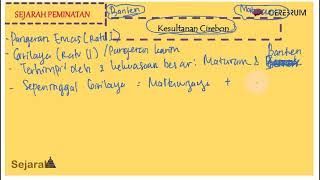 SEJARAH PEMINATAN
Banten
CEREBRUM
Kesultanan Cirebon
- Pangeran Emas (Ratu I)
- Girilaya (Ratu II) / Pangeran Karim
- Terhimpit oleh 2 kekuasaan besar: Mataram & Banten
- Sepeninggal Girilaya = Martawijaya +
Sejarah